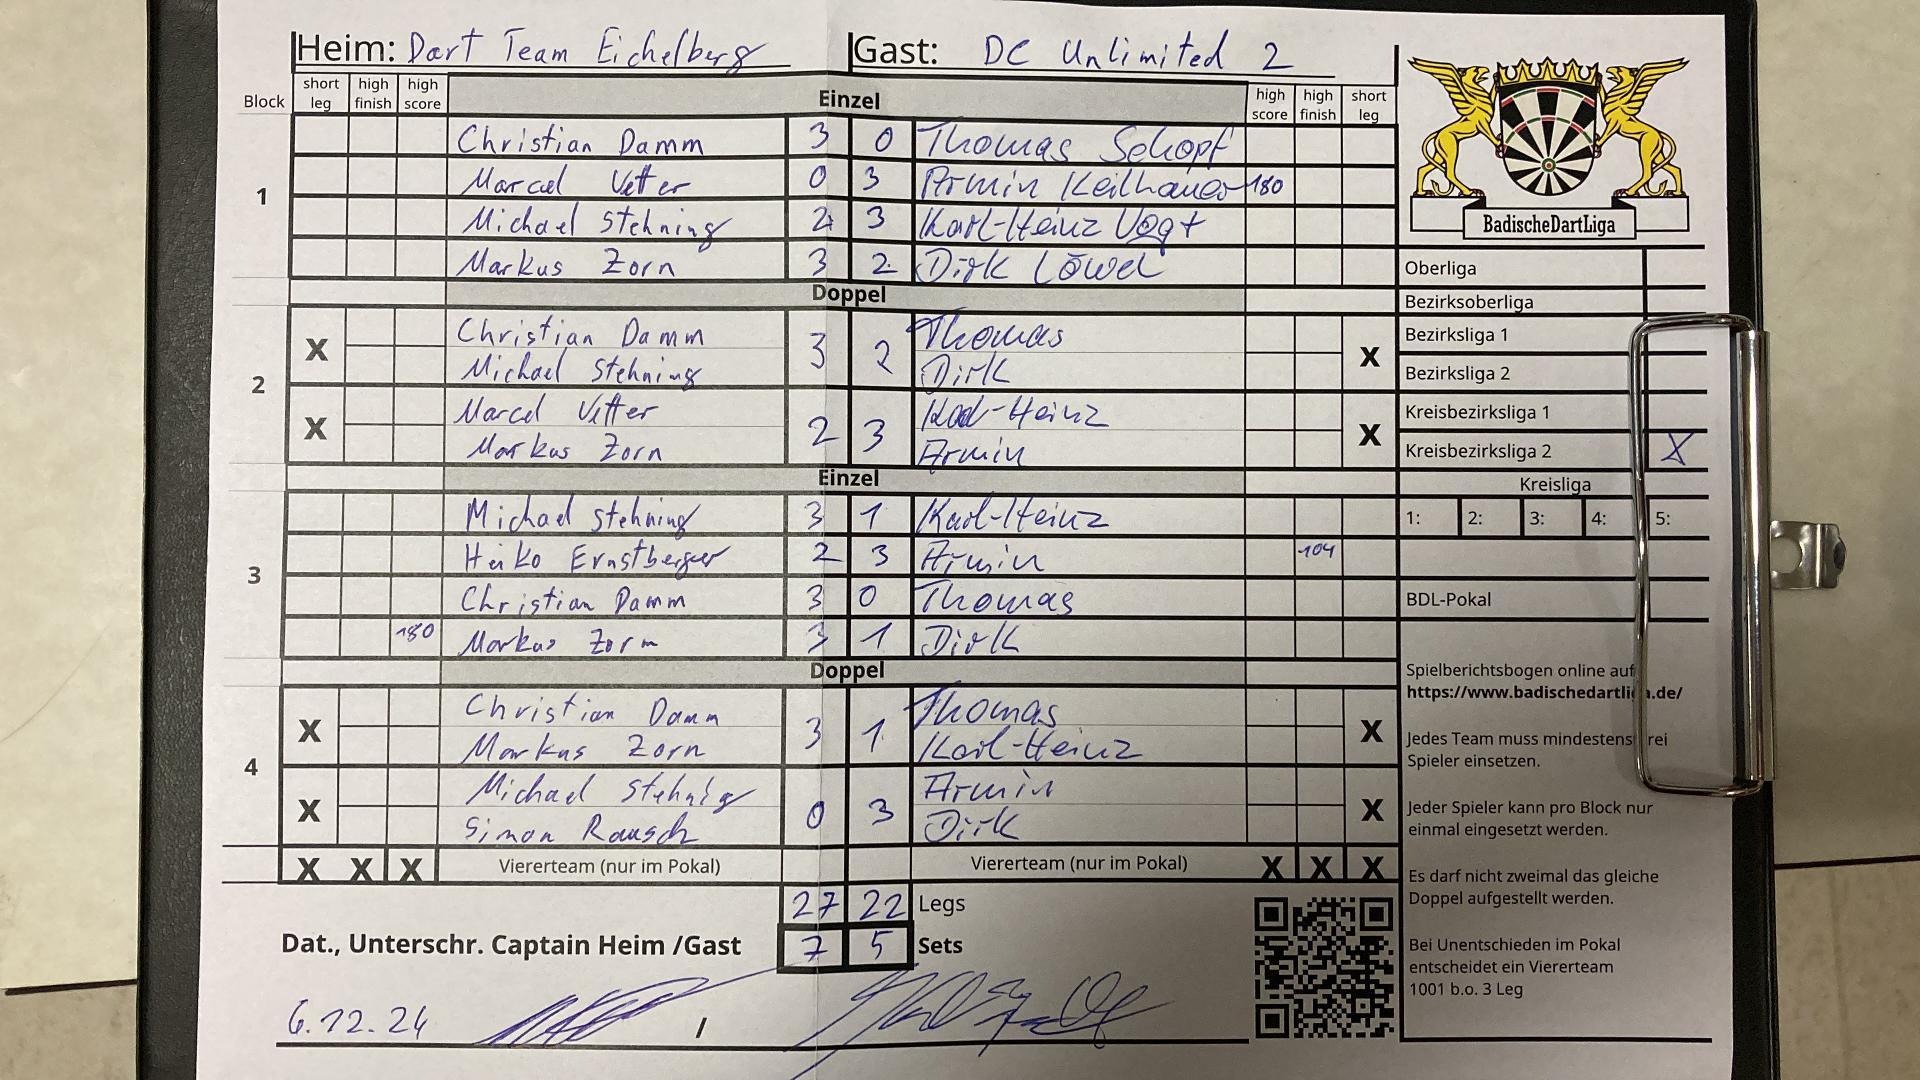 Heim: Dart Team Eichelberg Gast: DC Unlimited 2
Block short leg high finish high score Einzel high score high finish short leg
1
Christian Damm 3 0 Thomas Schopf
Marcel Vetter 0 3 Armin Keilhauer 180
Michael Stehning 2 3 Karl-Heinz Vogt
Markus Zorn 3 2 Dirk Löwel
Doppel
2
X Christian Damm 3 2 Thomas X
Michael Stehning Dirk
X Marcel Vetter 2 3 Karl-Heinz X
Markus Zorn Armin
Einzel
3
Michael Stehning 3 1 Karl-Heinz
Heiko Ernstberger 2 3 Armin 104
Christian Damm 3 0 Thomas
180 Markus Zorn 3 1 Dirk
Doppel
4
X Christian Damm 3 1 Thomas X
Markus Zorn Karl-Heinz
X Michael Stehnig 0 3 Armin X
Simon Rausch Dirk
X X X Viererteam (nur im Pokal) Viererteam (nur im Pokal) X X X
27 22 Legs
Dat., Unterschr. Captain Heim /Gast 7 5 Sets
6.12.24 /
BadischeDartLiga
Oberliga
Bezirksoberliga
Bezirksliga 1
Bezirksliga 2
Kreisbezirksliga 1
Kreisbezirksliga 2 X
Kreisliga
1: 2: 3: 4: 5:
BDL-Pokal
Spielberichtsbogen online auf
https://www.badischedartliga.de/
Jedes Team muss mindestens drei
Spieler einsetzen.
Jeder Spieler kann pro Block nur
einmal eingesetzt werden.
Es darf nicht zweimal das gleiche
Doppel aufgestellt werden.
Bei Unentschieden im Pokal
entscheidet ein Viererteam
1001 b.o. 3 Leg